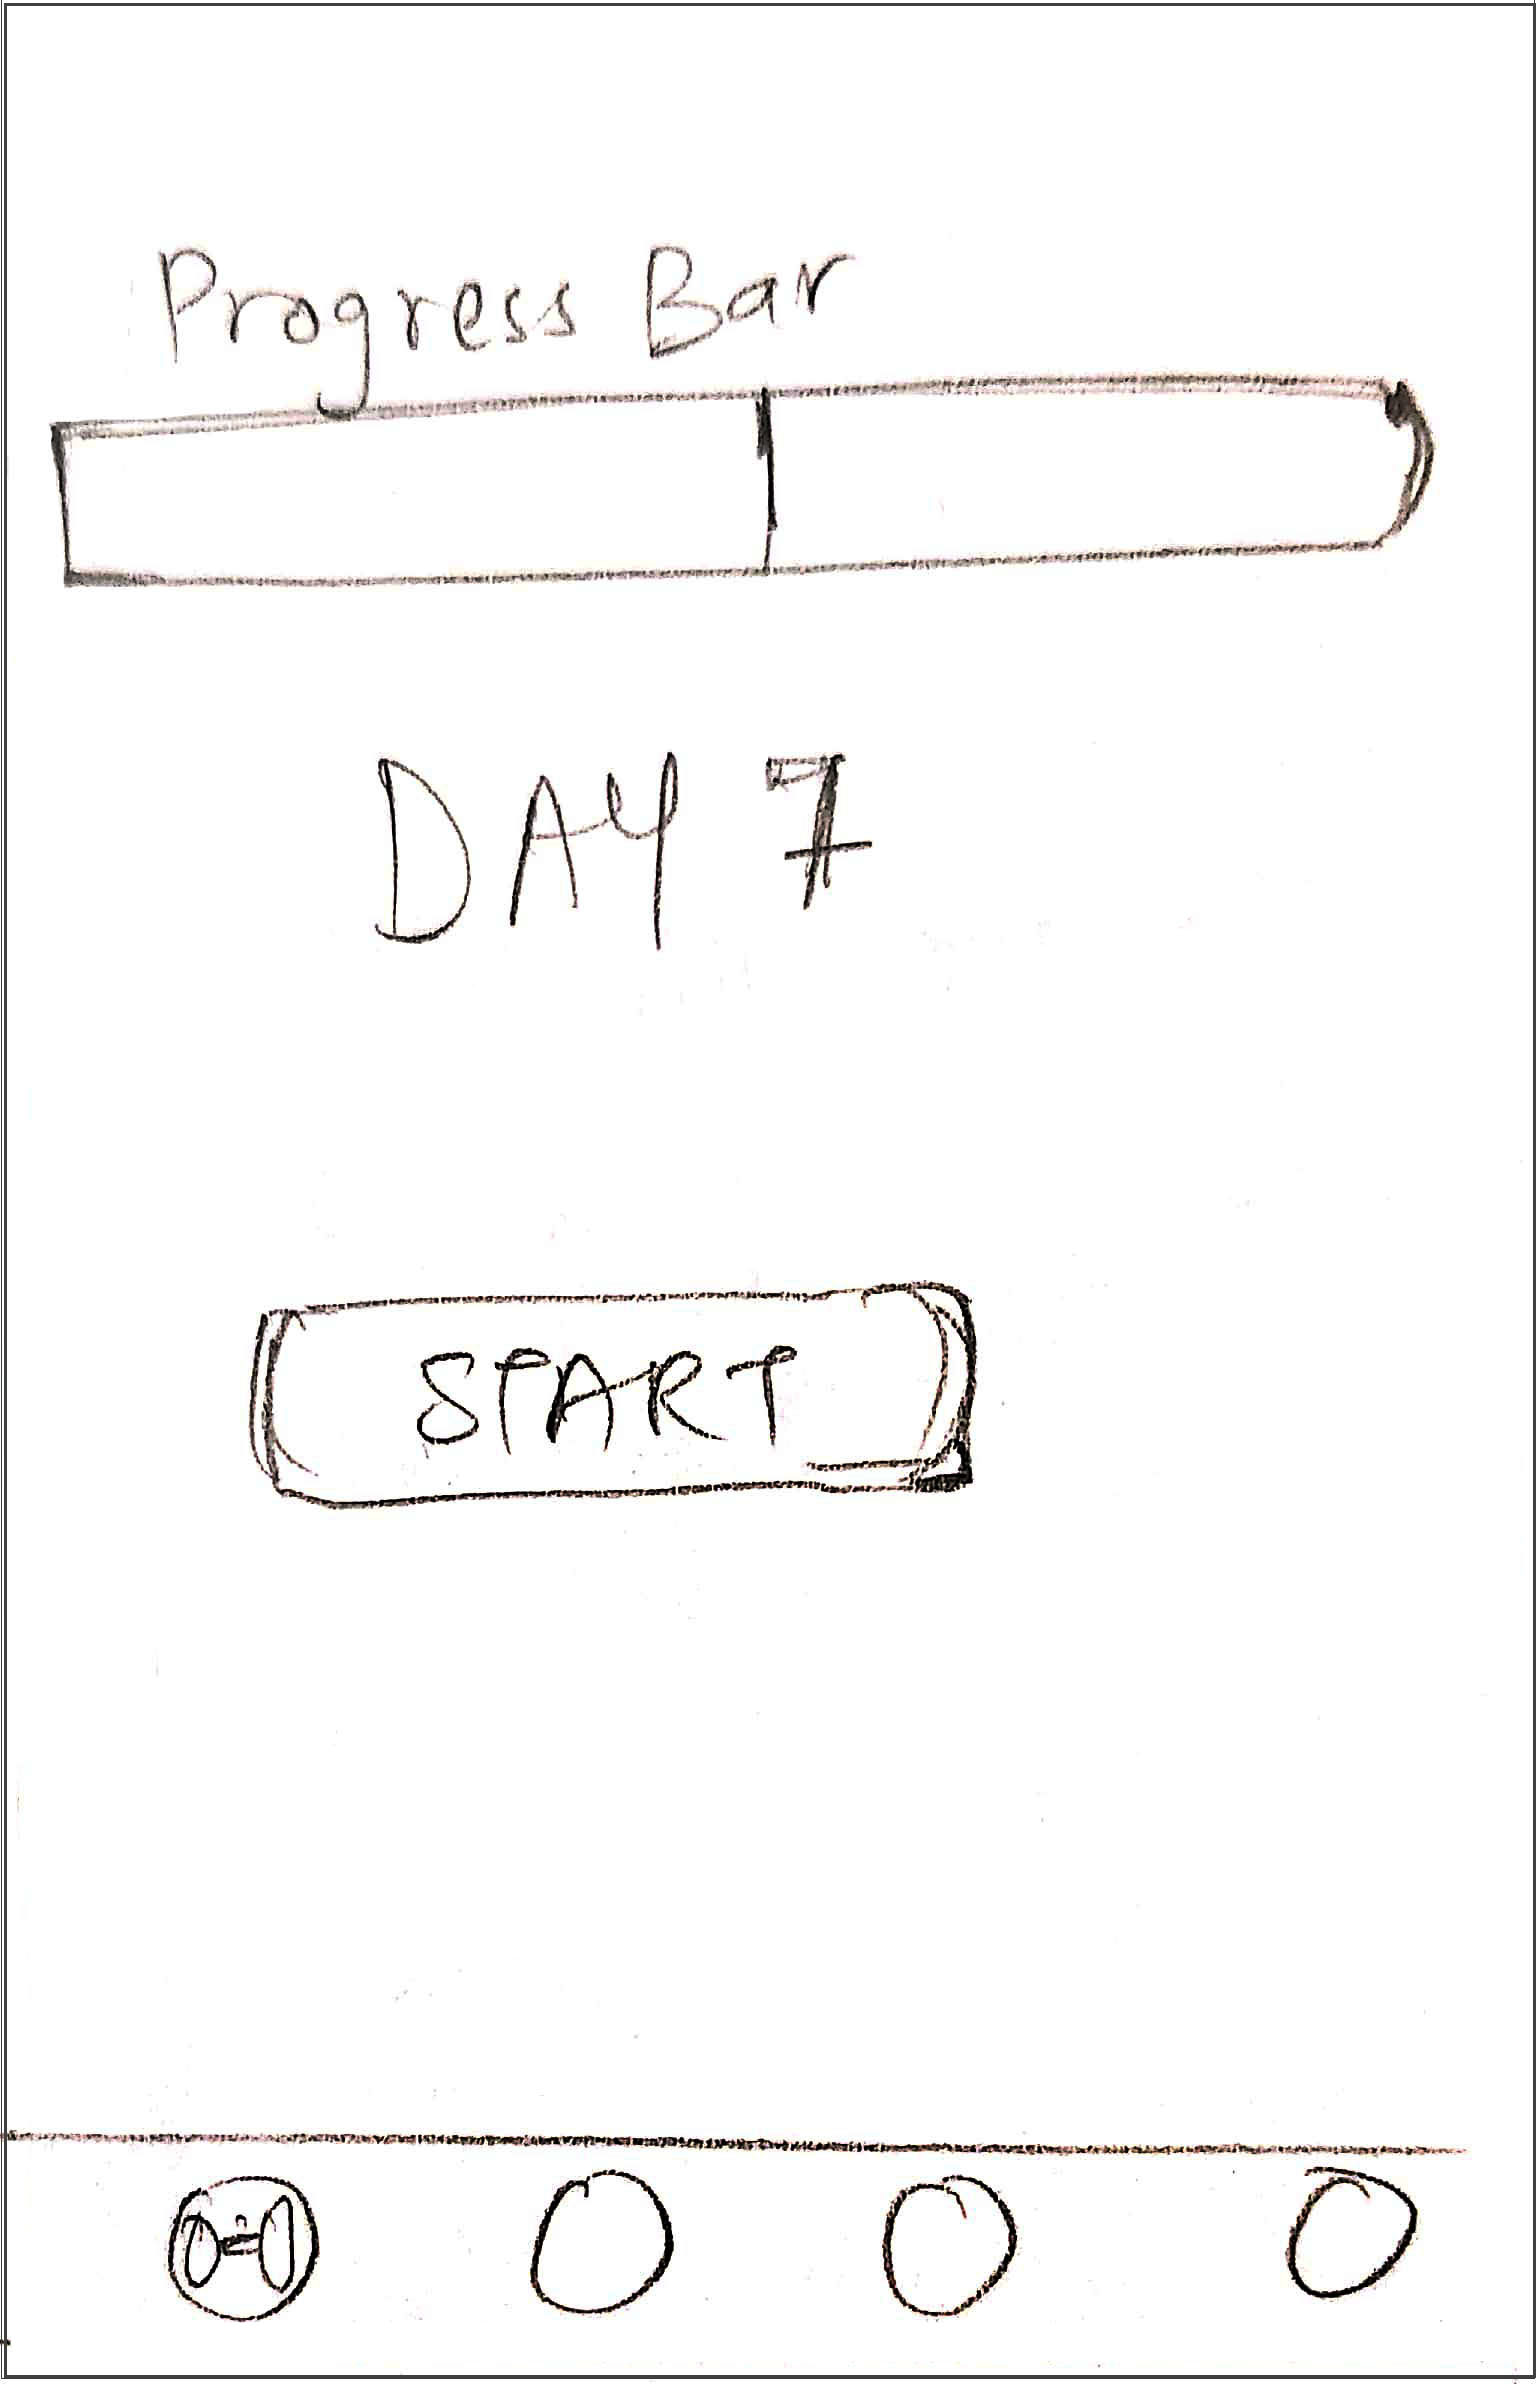 Progress Bar
DAY 7
START